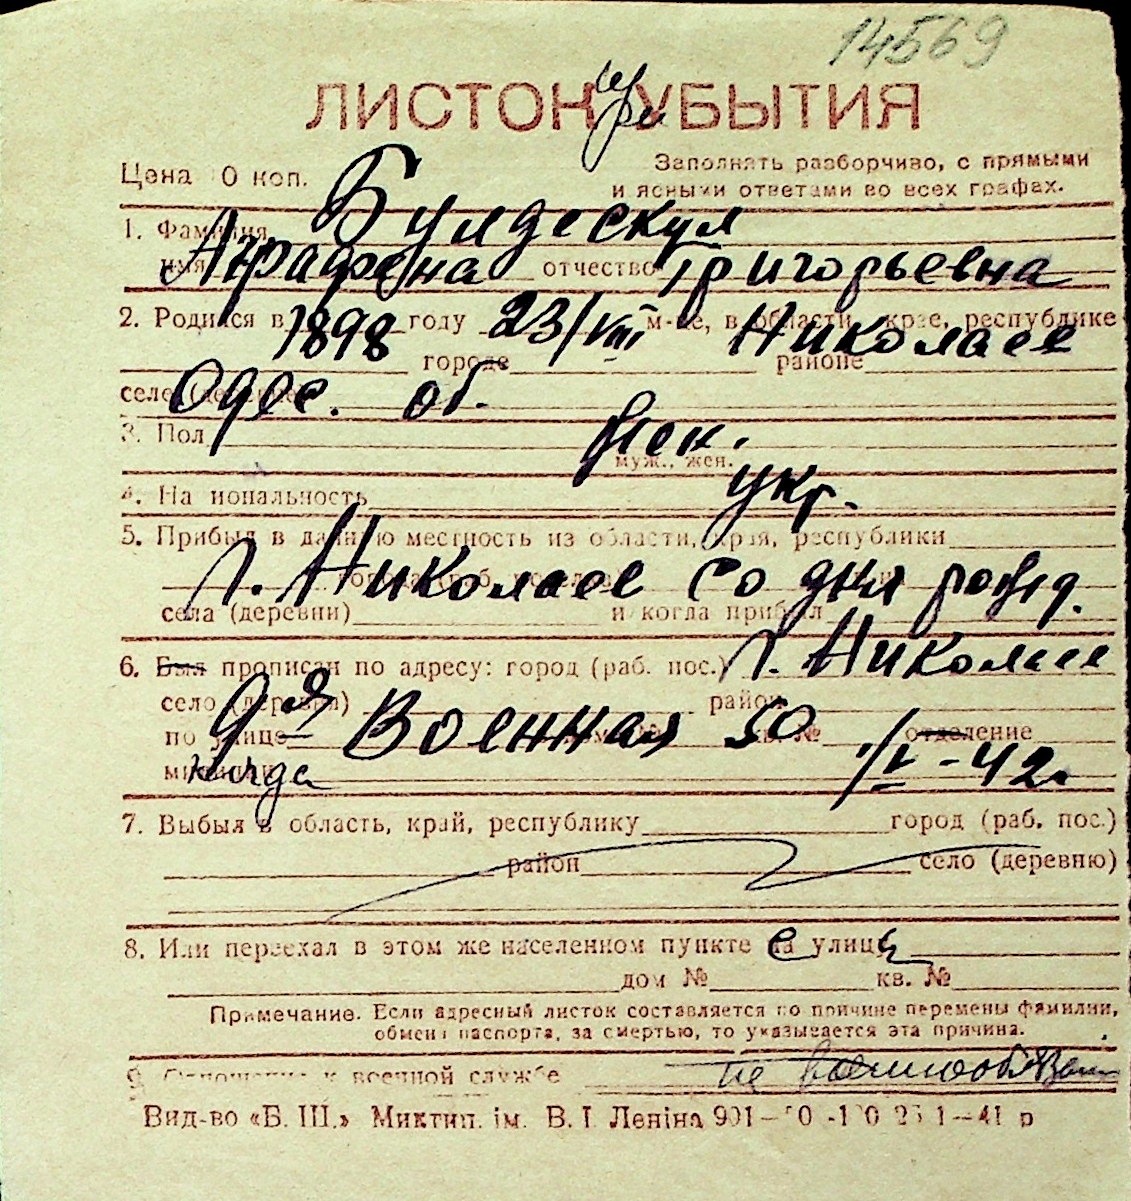 14569
ЛИСТОК при УБЫТИЯ
Цена 10 коп.
Заполнять разборчиво, с прямыми
и ясными ответами во всех графах.
1. Фамилия Булдескул
имя Аграфена отчество Григорьевна
2. Родился в 1898 году 23/VIII м-це, в области, крае, республике Николаев
городе районе
селе (деревне) Одес. об.
3. Пол жен.
муж., жен.
4. Национальность укр.
5. Прибыл в данную местность из области, края, республики
г. Николаев со дня рожд.
села (деревни) и когда прибыл
6. Был прописан по адресу: город (раб. пос.) г. Николаев
село (деревня) район
по улице 9ая Военная 50 кв. № отделение
милиции когда 1/V-42г.
7. Выбыл в область, край, республику город (раб. пос.)
район село (деревню)
8. Или переехал в этом же населенном пункте с улицы
дом № кв. №
Примечание. Если адресный листок составляется по причине перемены фамилии,
обмена паспорта, за смертью, то указывается эта причина.
9. Отношение к военной службе не военнообязан
Вид-во «Б. Ш.» Миктип. ім. В. І. Леніна